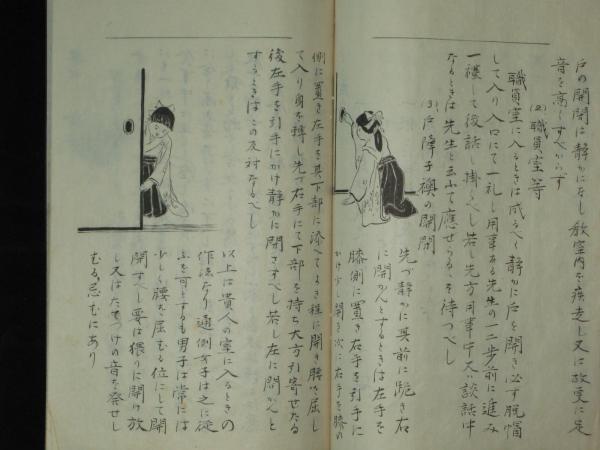 戸の開閉は静かになし教室内を疾走し又は故更に足
音を高くすべからず
(2)職員室等
職員室に入るときは成るべく静かに戸を開き必ず脱帽
して入り入口にて一礼し用事ある先生の一二歩前に進み
一礼して後話し掛くべし若し先方用事中又は談話中
なるときは先生と云ふて應せらるゝを待つべし
(3)戸障子襖の開閉
先づ静かに其前に跪き右
に開かんとするときは左手を
膝側に置き右手を引手に
かけ少し開き次に右手を膝の
側に置き左手を其下部に添へてよき程に開き腰を屈し
て入り身を轉し先づ右手にて下部を持ち大方引寄せたる
後左手を引手にかけ静かに閉さすべし若し左に開かんと
するときはこの反対なるべし
以上は貴人の室に入るときの
作法なり通例女子は之に従
ふを可とするも男子は常には
少しく腰を屈むる位にして開
閉すべし要は猥りに開け放
し又はたてつけの音を発せし
むる忌むにあり